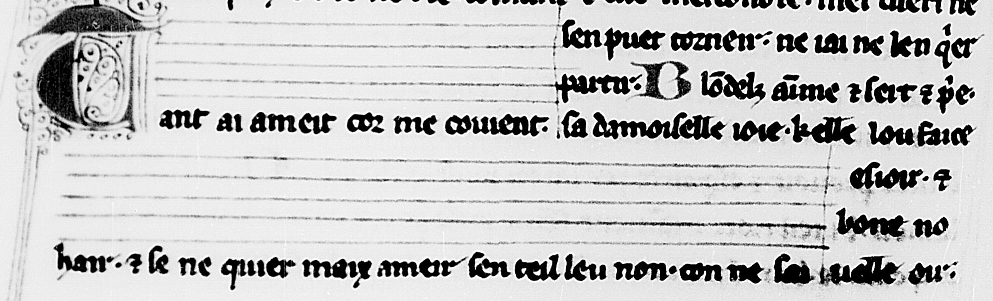 sen puet torneir· ne iai ne len q̇er
partir· Blōdels aīme ⁊ sert ⁊ p̄e·
Tant ai ameit cor me couient· sa damoiselle ioie· kelle lou faice
esioir· ⁊
bone no
hair· ⁊ se ne quier maix ameir sen teil leu non· con ne sai uelle oir·